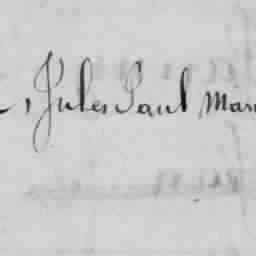 , Jules Paul Mar